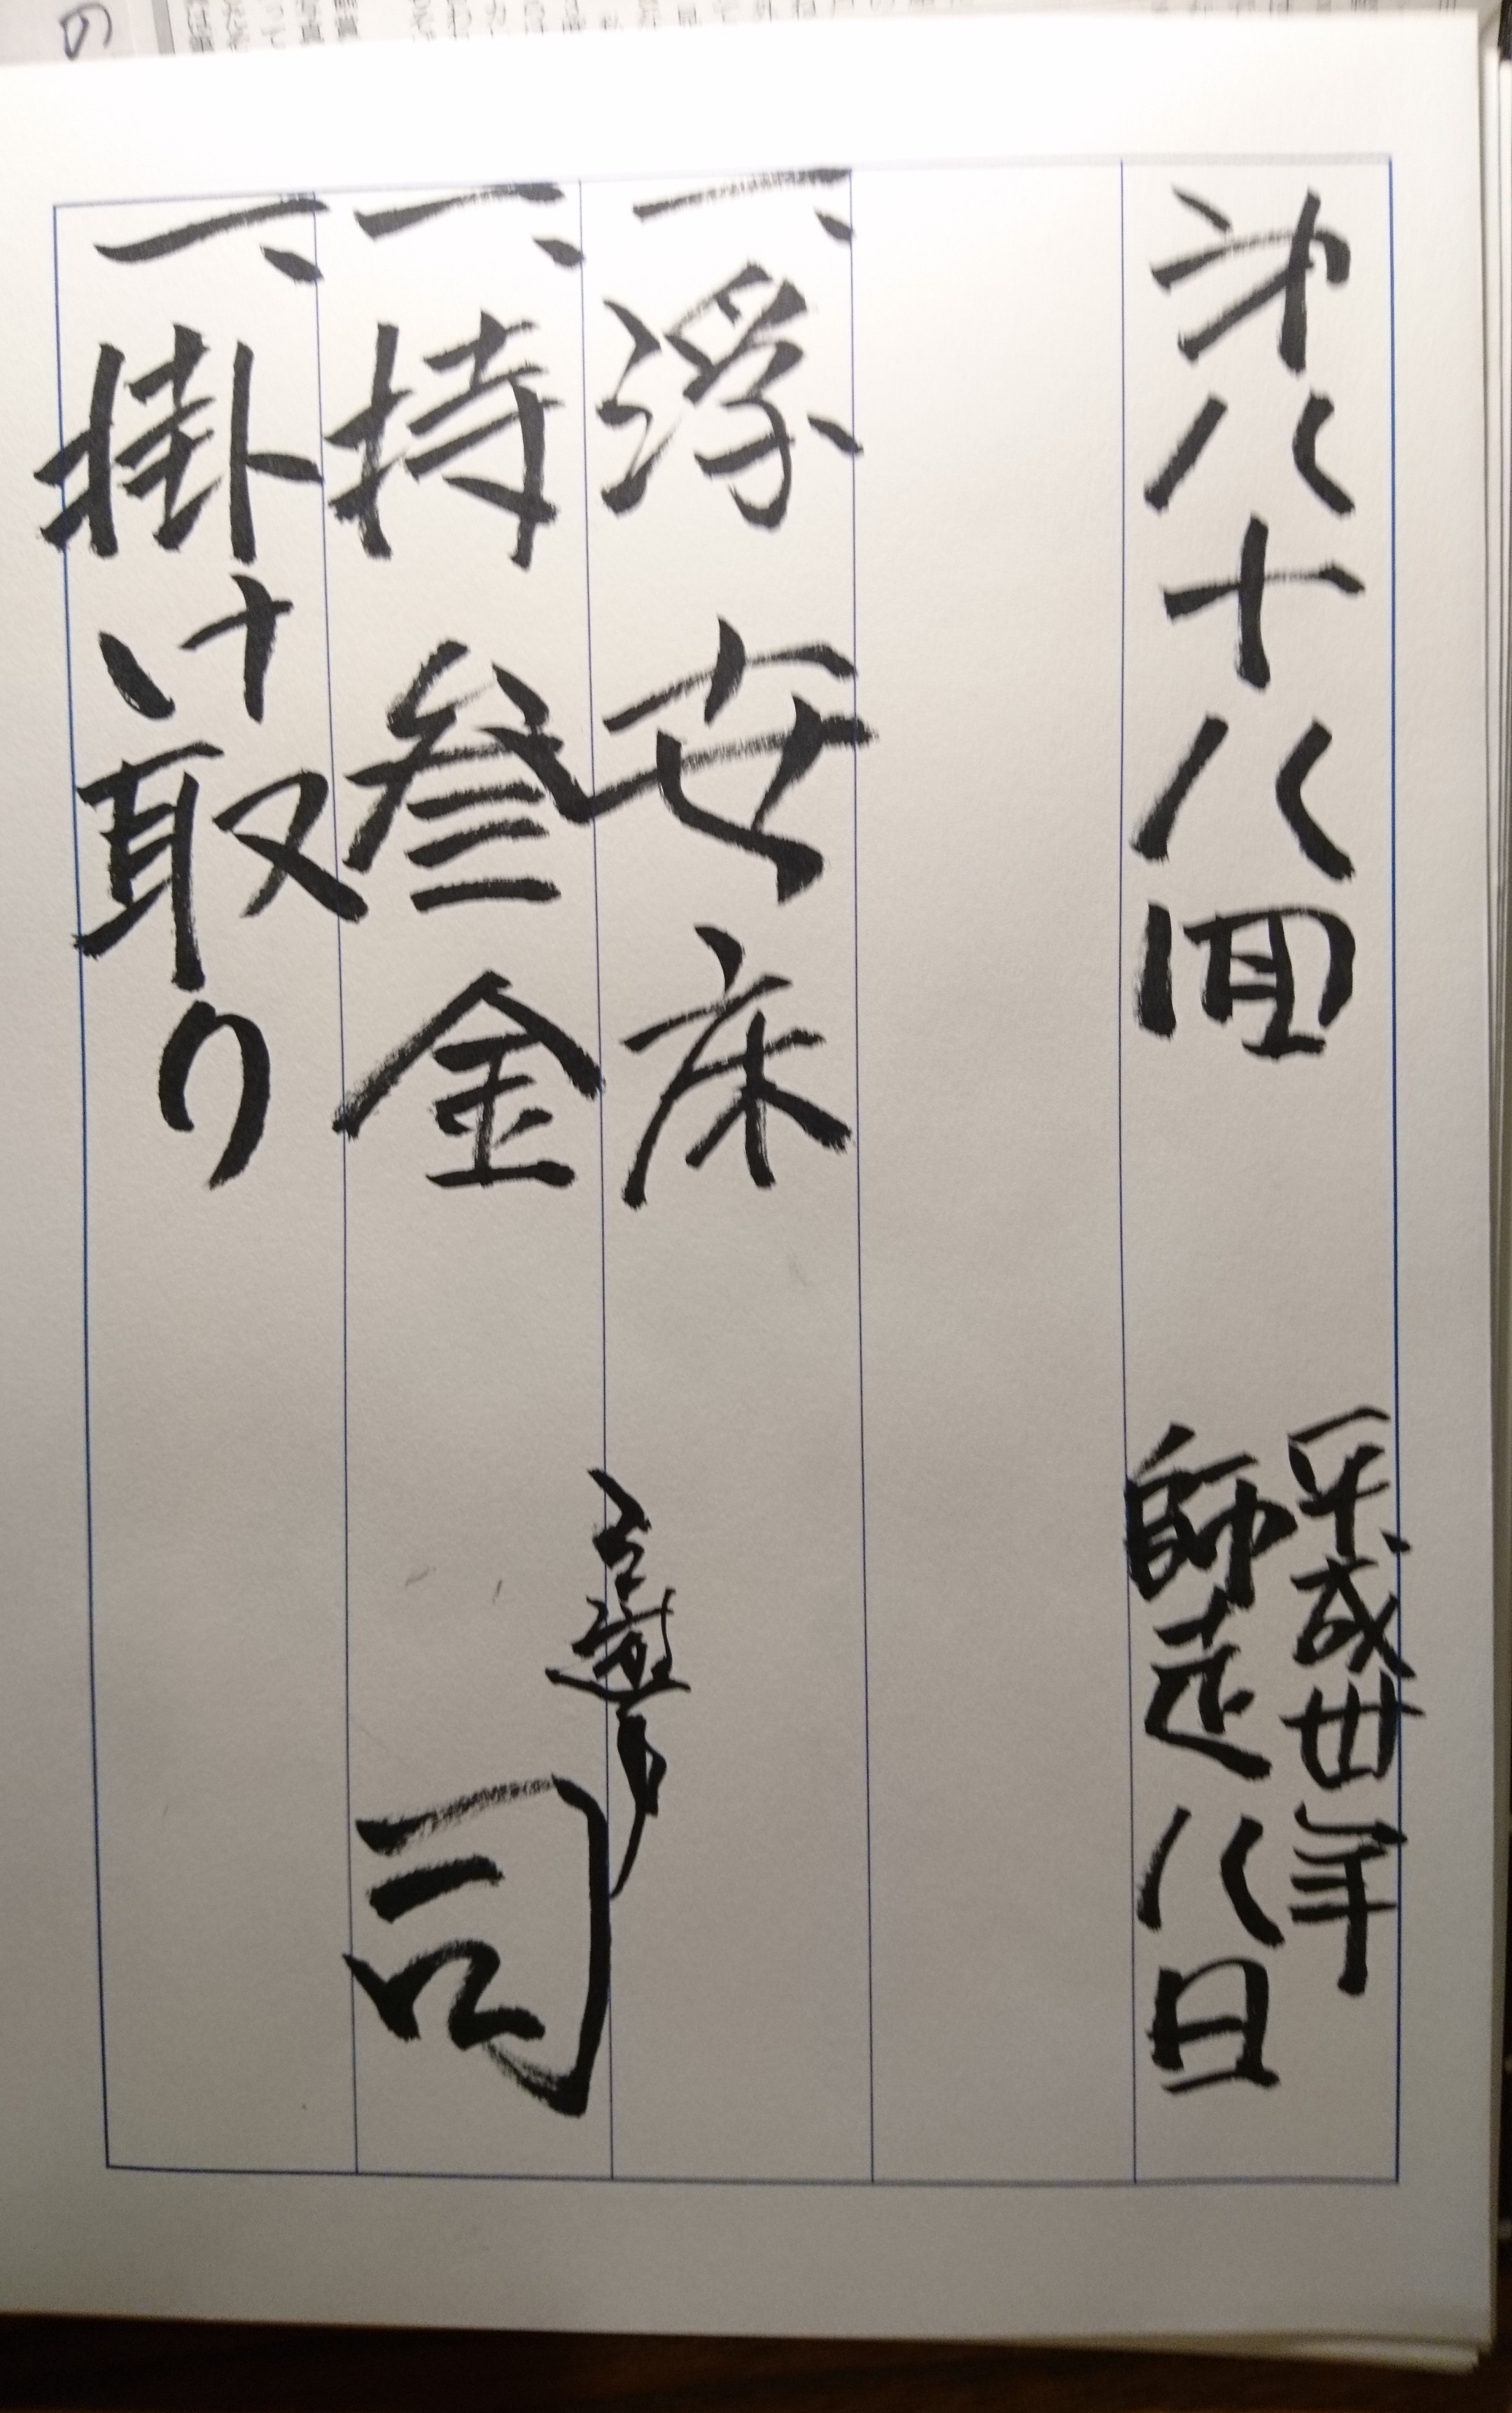 第八十八回
平成卅年
師走八日
一、浮世床
一、持参金
一、掛け取り
三遊亭
司